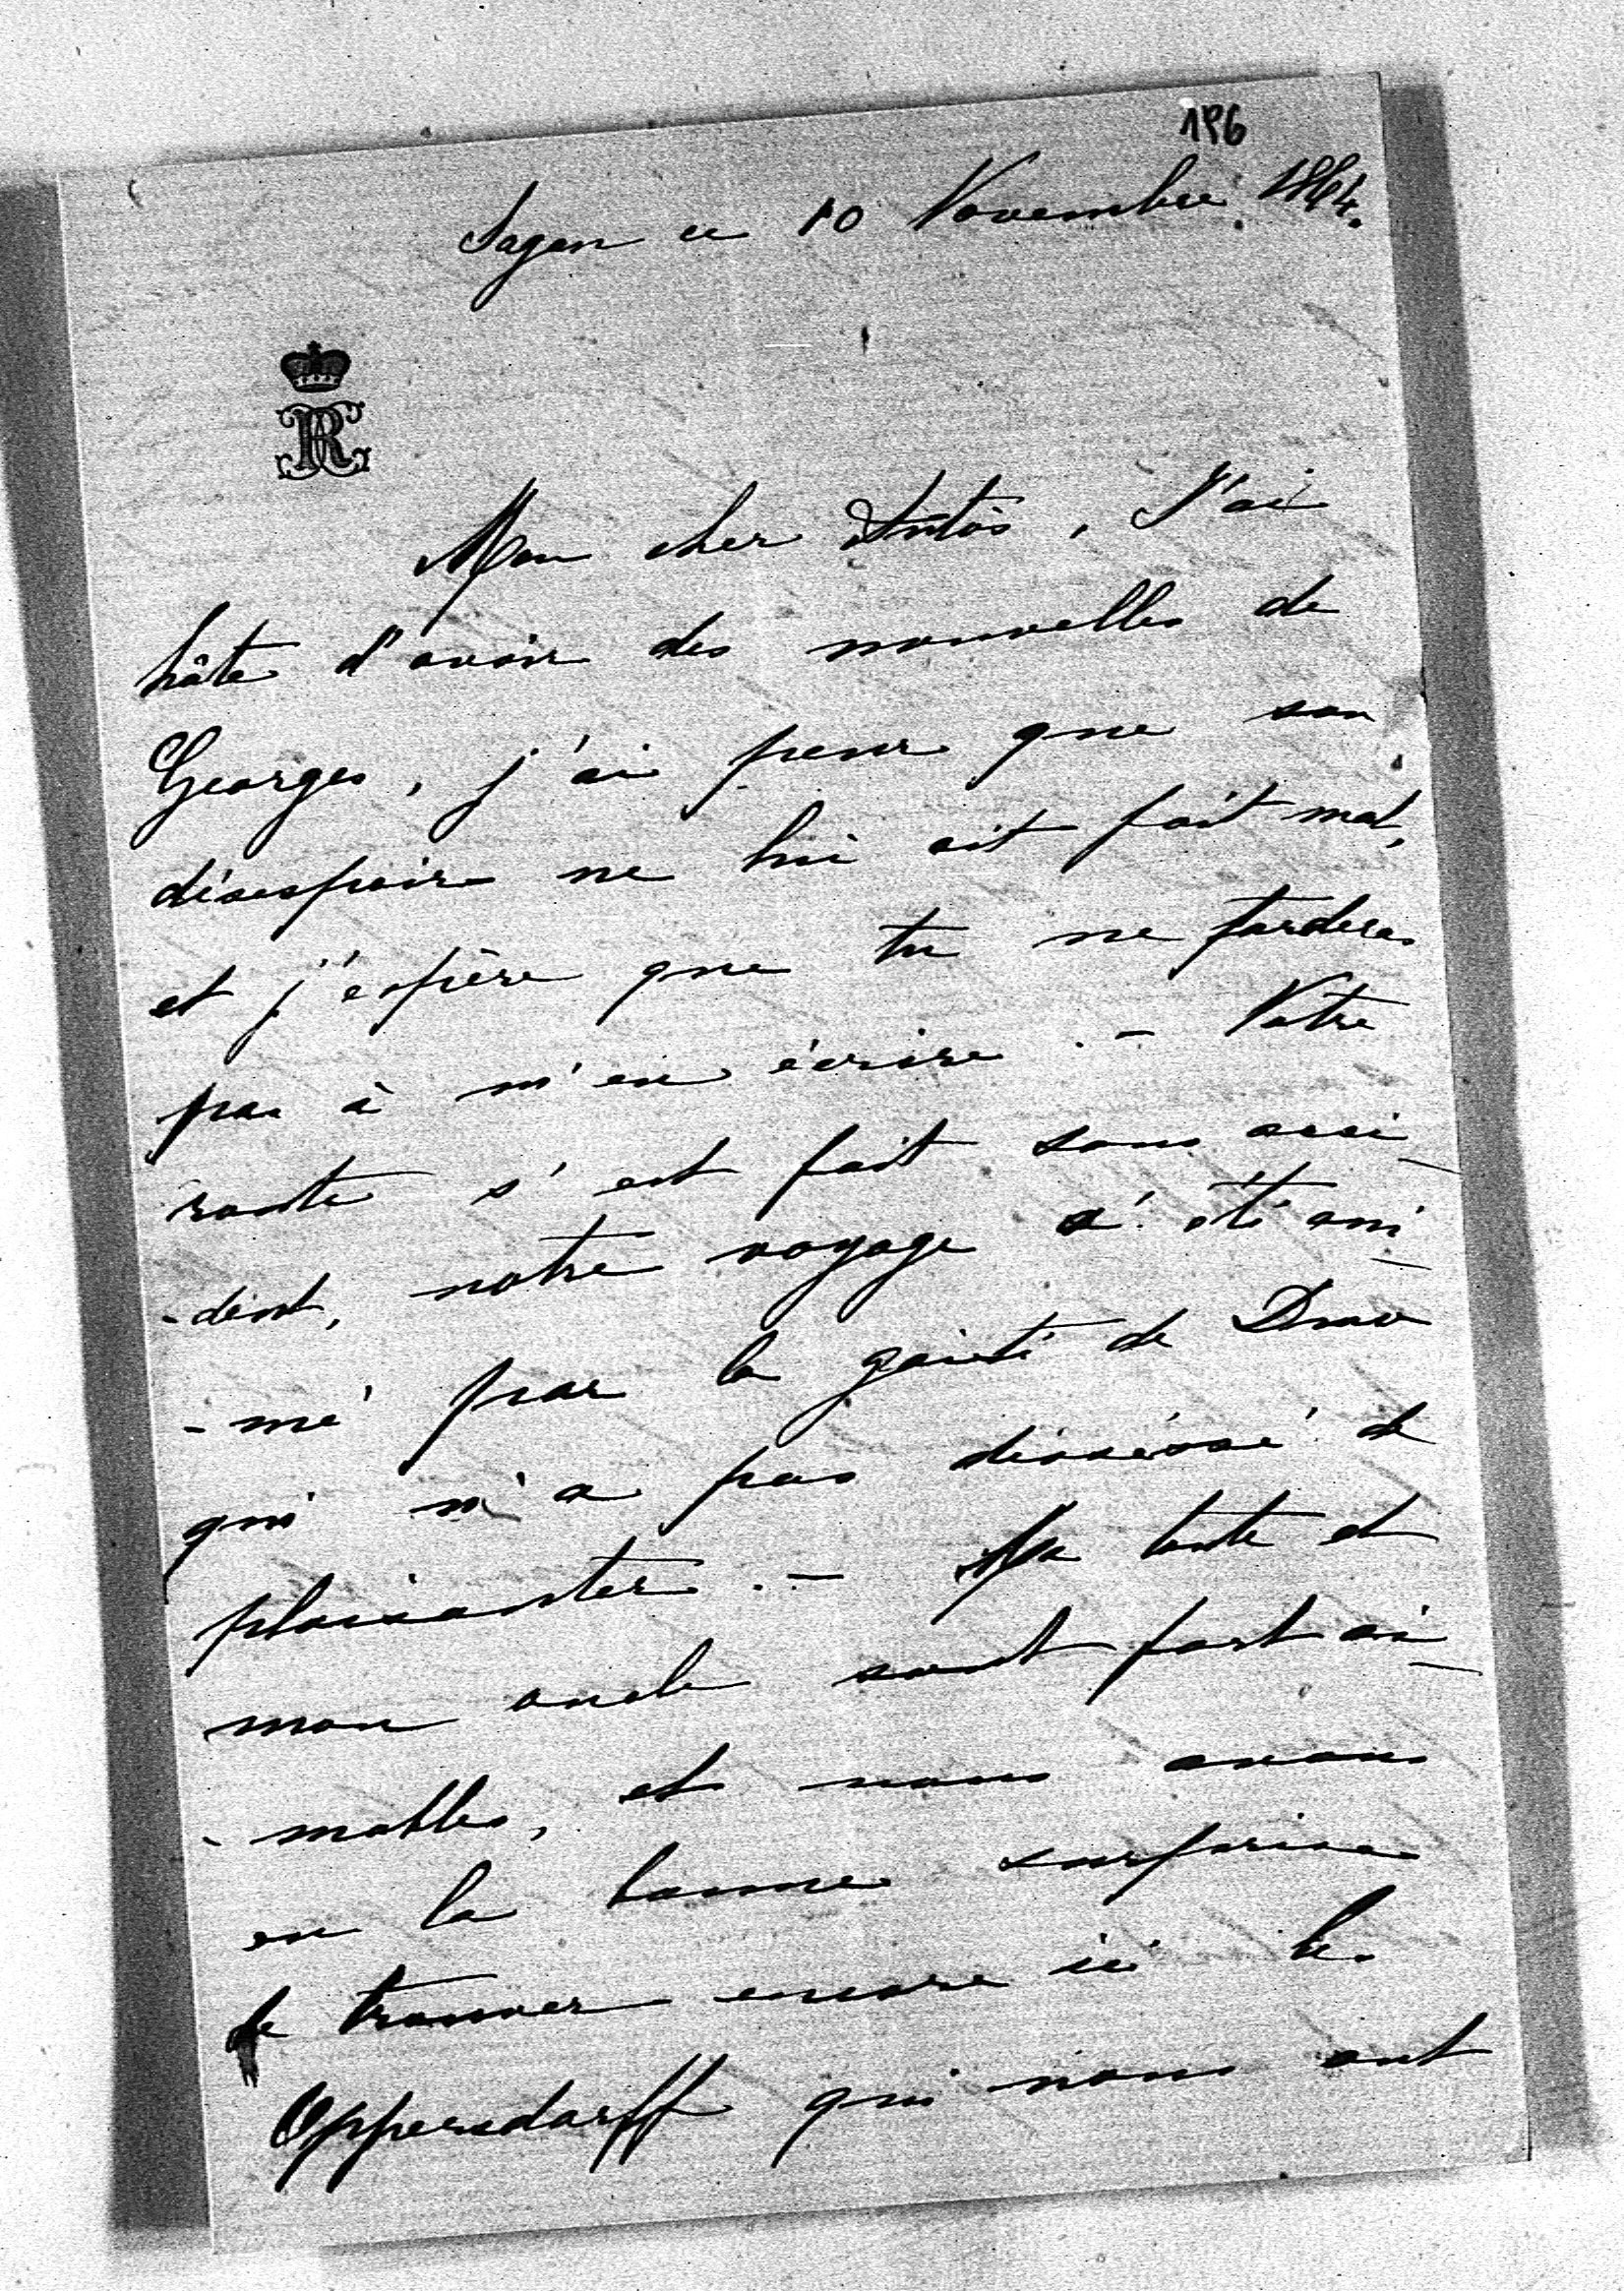 196
Sagan ce 10 Novembre 1884.
Mon cher Antos, J'ai
hâte d'avoir des nouvelles de
Georges, j'ai peur que son
désespoir ne lui ait fait mal,
et j'espère que tu ne tarderas
pas à m'en écrire. - Notre
route s'est fait sans acci-
-dent, notre voyage a été ani-
-mé par la gaieté de
qui n'a pas discéssé de
plaisanter. - Ma tante et
mon oncle sont fort ai-
-mables, et nous avons
eu la bonne surprise
de trouver encore ici les
Oppersdorff qui nous ont